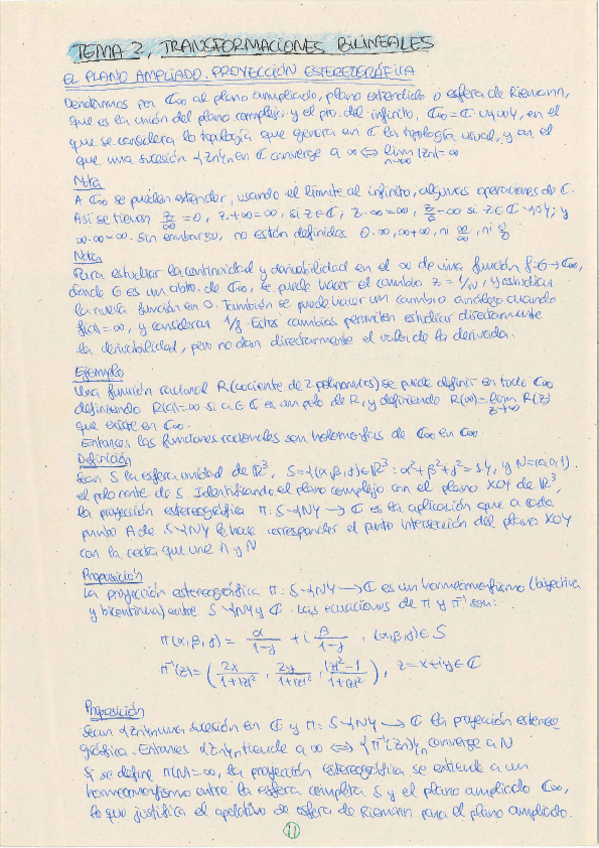 TEMA 2, TRANSFORMACIONES BILINEALES
EL PLANO AMPLIADO. PROYECCIÓN ESTEREOGRÁFICA
Denotamos por C∞ al plano ampliado, plano extendido o esfera de Riemann,
que es la unión del plano complejo y el pto. del infinito, C∞ = C ∪ {∞}, en el
que se considera la topología que genera en C la topología usual, y en el
que una sucesión {Zn}n en C converge a ∞ ⟺ lim n→∞ |Zn| = ∞
Nota
A C∞ se pueden extender, usando el límite al infinito, algunas operaciones de C.
Así se tienen z/∞ = 0, z+∞=∞, si z∈C, z·∞=∞, si z∈C; y
∞·∞=∞. Sin embargo, no están definidos 0·∞, ∞+∞, ni ∞/∞, ni
Nota
Para estudiar la continuidad y derivabilidad en el ∞ de una función f: G→C∞,
donde G es un abto. de C∞, se puede hacer el cambio z = 1/w, y estudiar
la nueva función en 0. También se puede hacer un cambio análogo cuando
f(a)=∞, y considerar 1/f. Estos cambios permiten estudiar directamente
la derivabilidad, pero no dan directamente el valor de la derivada.
Ejemplo
Una función racional R (cociente de 2 polinomios) se puede definir en todo C∞
definiendo R(a)=∞ si a∈C es un polo de R, y definiendo R(∞)=lim z→∞ R(z)
que existe en C∞.
Entonces las funciones racionales son holomorfas de C∞ en C∞.
Definición
Sean S la esfera unidad de R³, S={(α,β,γ)∈R³: α²+β²+γ²=1}, y N=(0,0,1)
el polo norte de S. Identificando el plano complejo con el plano XOY de R³,
la proyección estereográfica Π: S∖{N} → C es la aplicación que a cada
punto A de S∖{N} le hace corresponder el punto intersección del plano XOY
con la recta que une A y N
Proposición
La proyección estereográfica Π: S∖{N} → C es un homeomorfismo (biyectiva
y bicontinua) entre S∖{N} y C. Las ecuaciones de Π y Π⁻¹ son:
Π(α,β,γ) = α/(1-γ) + i β/(1-γ), (α,β,γ)∈S
Π⁻¹(z) = (2x/(1+|z|²), 2y/(1+|z|²), (|z|²-1)/(1+|z|²)), z=x+iy∈C
Proposición
Sean {Zn}n una sucesión en C y Π: S∖{N} → C la proyección estereo
gráfica. Entonces {Zn}n tiende a ∞ ⟺ {Π⁻¹(Zn)}n converge a N
Si se define Π(N)=∞, la proyección estereográfica se extiende a un
homeomorfismo entre la esfera completa S y el plano ampliado C∞,
lo que justifica el apelativo de esfera de Riemann para el plano ampliado.
11